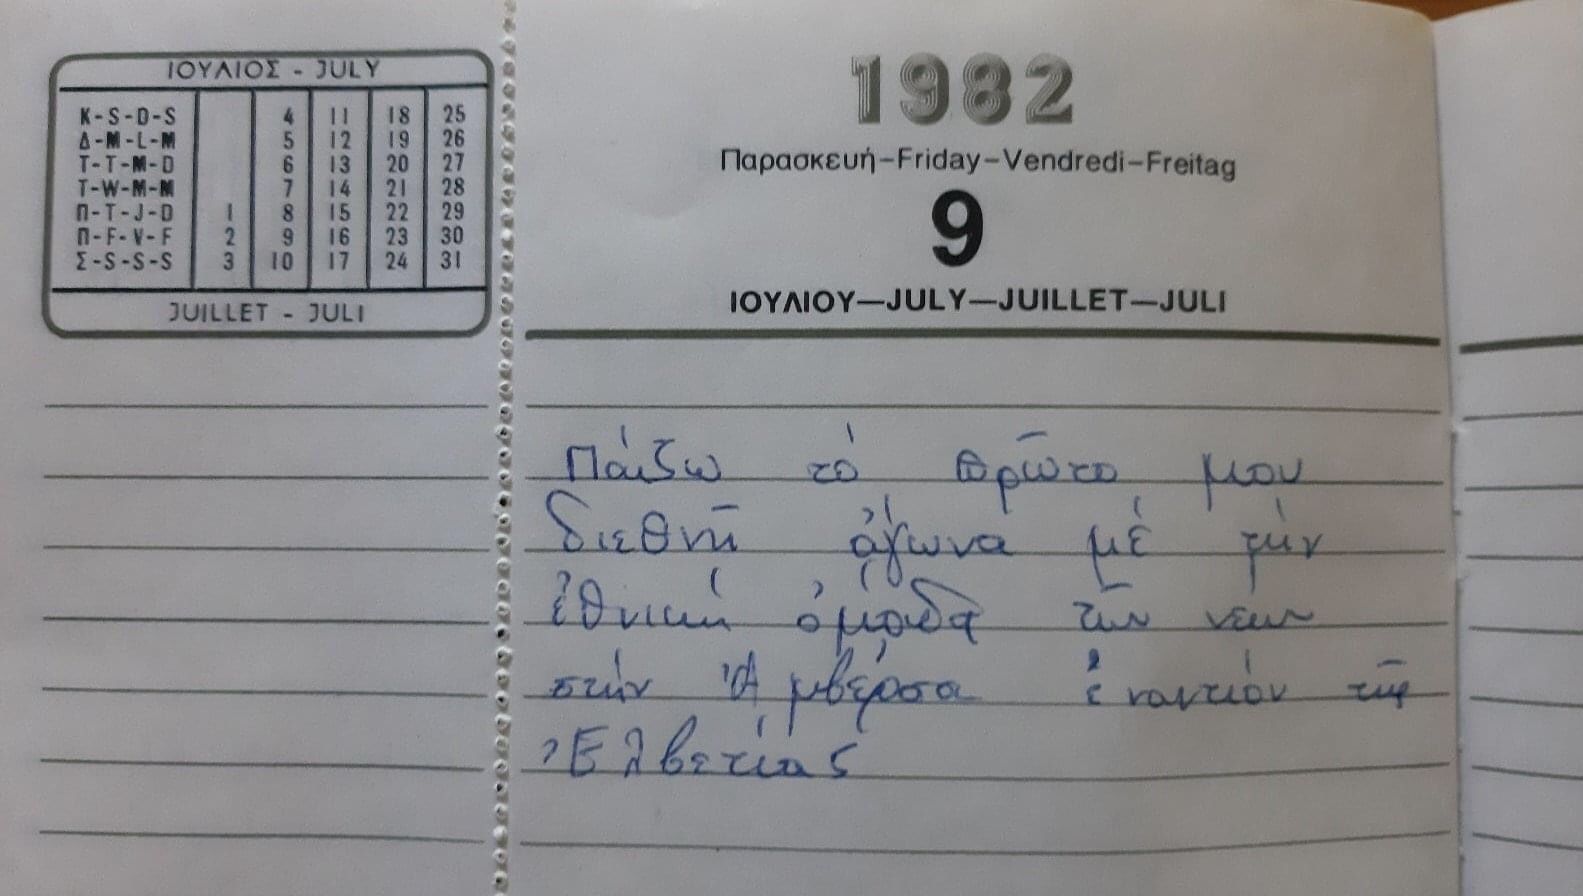 ΙΟΥΛΙΟΣ - JULY
Κ-S-D-S 4 11 18 25
Δ-M-L-M 5 12 19 26
Τ-T-M-D 6 13 20 27
Τ-W-M-M 7 14 21 28
Π-T-J-D 1 8 15 22 29
Π-F-V-F 2 9 16 23 30
Σ-S-S-S 3 10 17 24 31
JUILLET - JULI
1982
Παρασκευή-Friday-Vendredi-Freitag
9
ΙΟΥΛΙΟΥ—JULY—JUILLET—JULI
Παίζω τό πρῶτο μου
διεθνῆ ἀγώνα μέ τήν
ἐθνική ὀμάδα τῶν νεων
στήν Ἀμβέρσα ἐναντίον τῆς
Ἐλβετίας